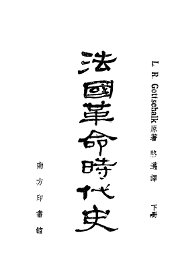 L. R. Gottschalk 原著
譯
下冊
法國革命時代史
南方印書館